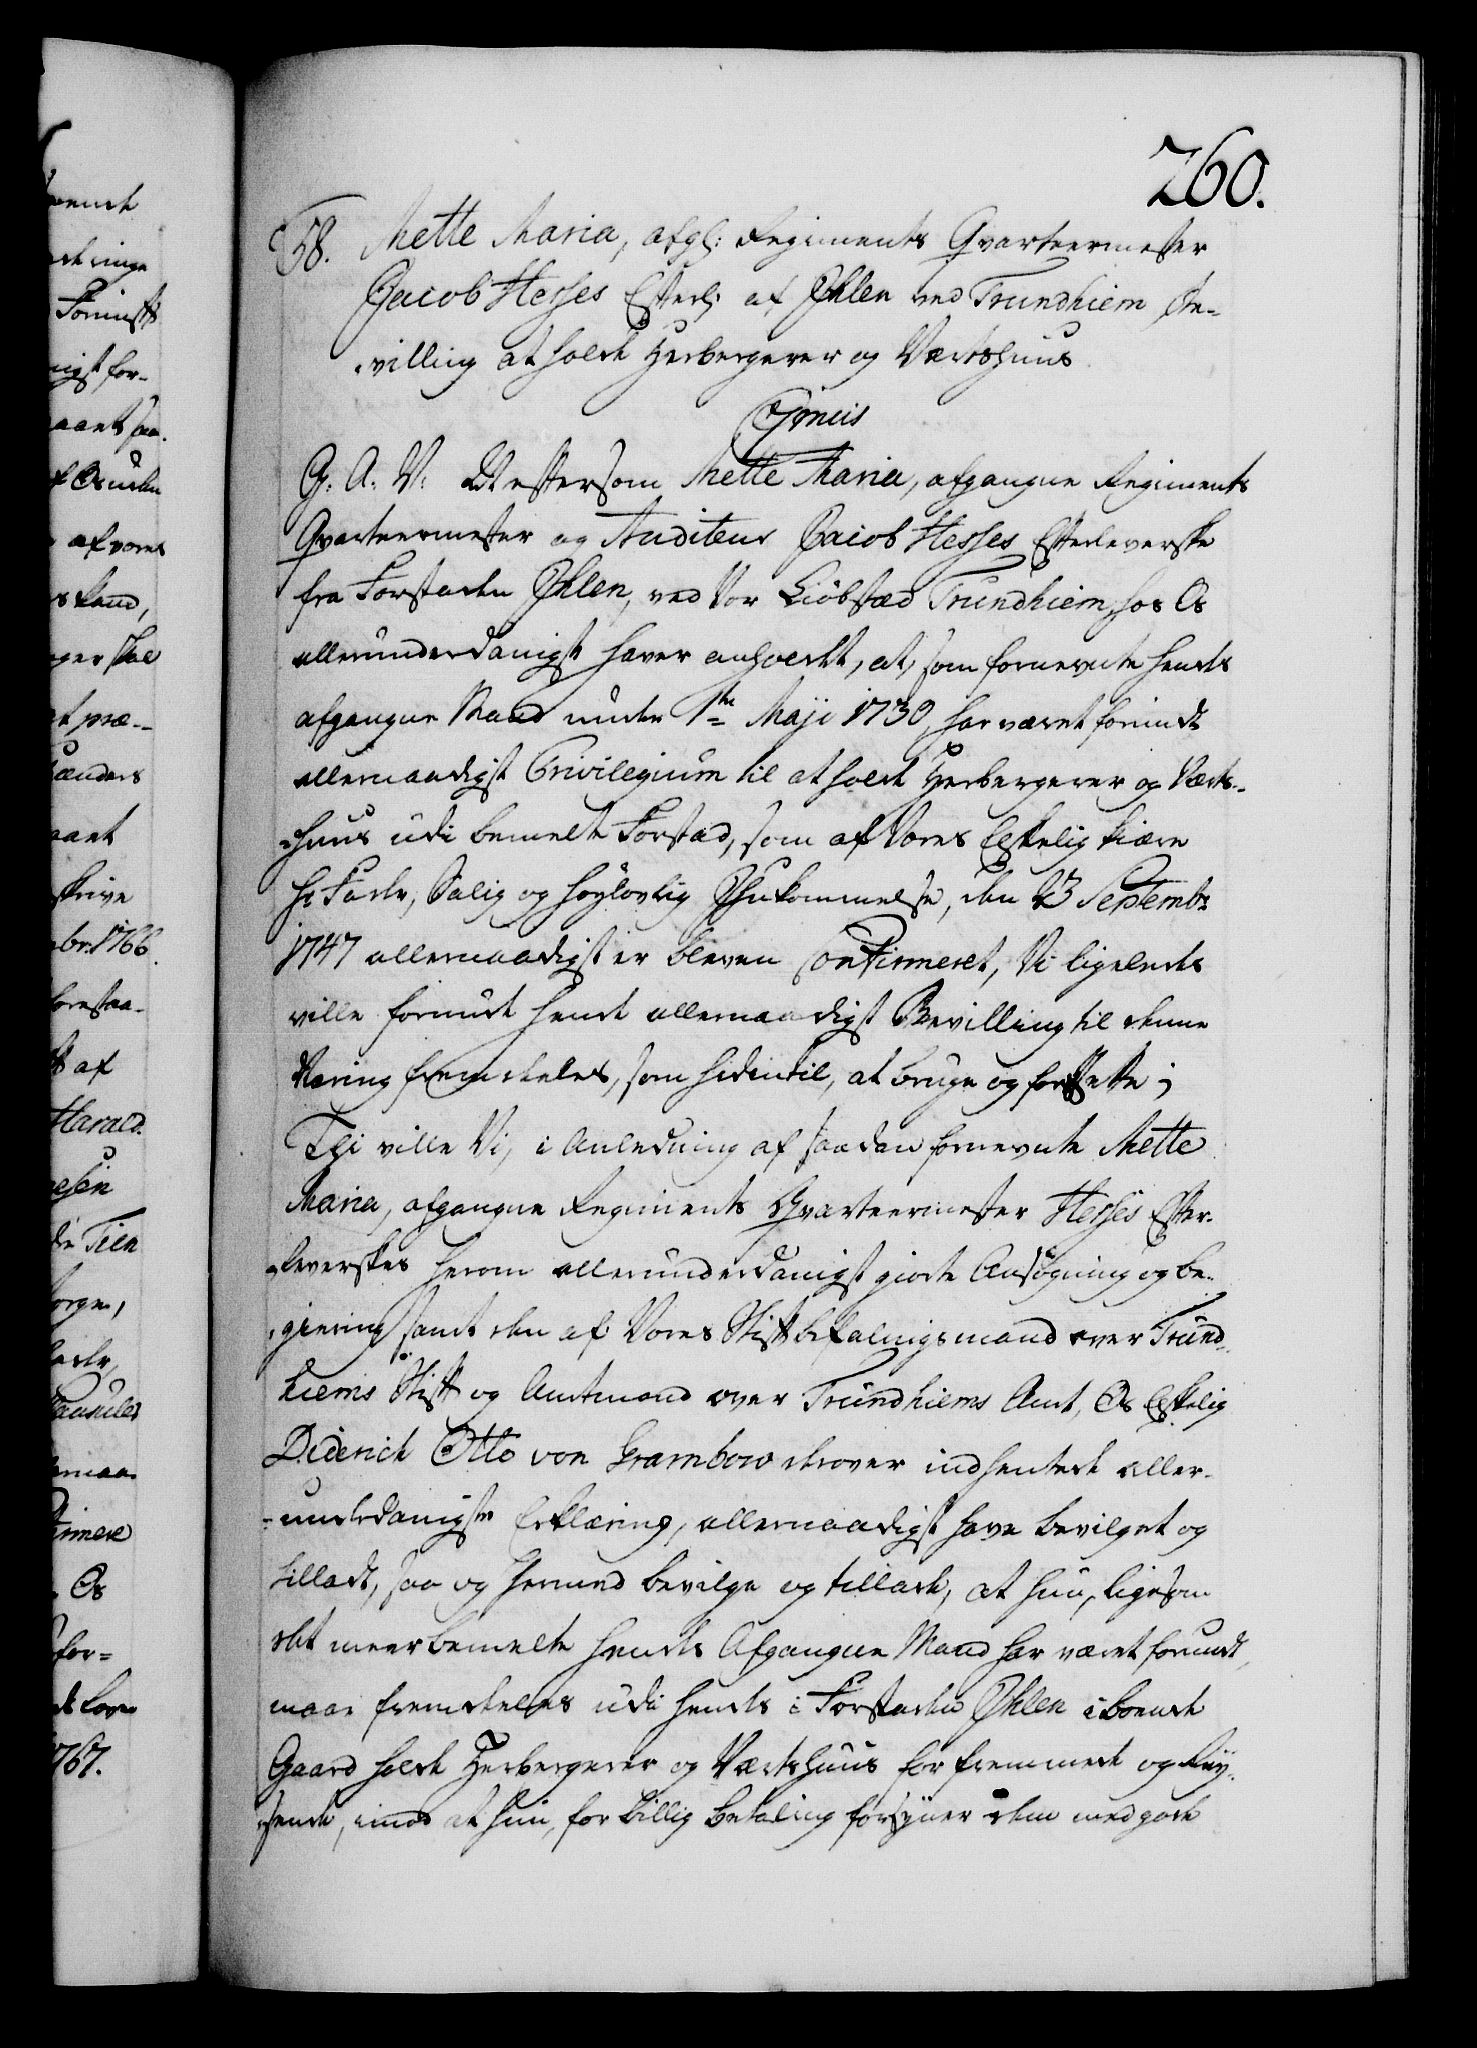 260.
58. Mette Maria, afgl: Regiments Qvarteermester
Jacob Hesses Efterl: af Ihlen ved Trundhiem Be-
-villing at holde Herbergerer og Vertshuus
C: 7mus
G. A. V. At eftersom Mette Maria, afgangne Regiments
Qvarteermester og Auditeur Jacob Hesses Efterleverske
fra Forstaden Ihlen, ved Vor Kiøbstæd Trundhiem, hos Os
allerunderdanigst haver anholdt, at, som fornevnte hendes
afgangne Mand under 1te Maji 1730, har været forundt
allernaadigst Privilegium til at holde Herbergerer og Verts-
-huus udi bemelte Forstad, som af Vores Elskelig kiære
Hr Fader, Salig og høylovlig Ihukommelse, den 23 Septembr
1747 allernaadigst er bleven Confirmeret, Vi ligeledes
ville forunde hende allernaadigst Bevilling til denne
Næring fremdeles, som hidentil, at bruge og fortsette;
Thi ville Vi, i Anledning af saadan fornevnte Mette
Maria, afgangne Regiments Qvarteermester Hesses Efter-
-leverskes herom allerunderdanigst giorte Ansøgning og be-
-giering samt den af Vores Stiftbefalingsmand over Trund-
hiems Stift og Amtmand over Trundhiems Amt, Os Elskelig
Diderich Otto von Grambow derover indhentede aller-
-underdanigste Erklæring, allernaadigst have bevilget og
tilladt, saa og hermed bevilge og tillade, at hun, ligesom
det meerbemelte hendes Afgangne Mand har været forundt,
maae fremdeles udi hendes i Forstaden Ihlen iboende
Gaard holde Herbergerer og Værtshuus for fremmede og Rey-
-sende, imod at hun, for billig betaling forsyner dem med gode